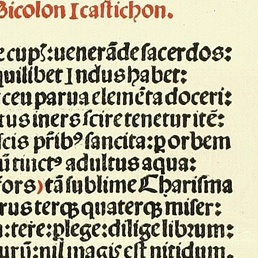 Bicolon Icastichon.
e cupꝭ: uenerãde sacerdos:
quilibet Indus habet:
ceu parua elemẽta doceri:
tus iners scire tenetur itẽ:
scis prĩbꝰ sancita: ꝑ orbem
ũ tinctꝰ adultus aqua:
fors) tã sublime Charisma
rus terqꝫ quaterqꝫ miser:
: tere: plege: dilige librum:
urũ: nil magis est nitidum.